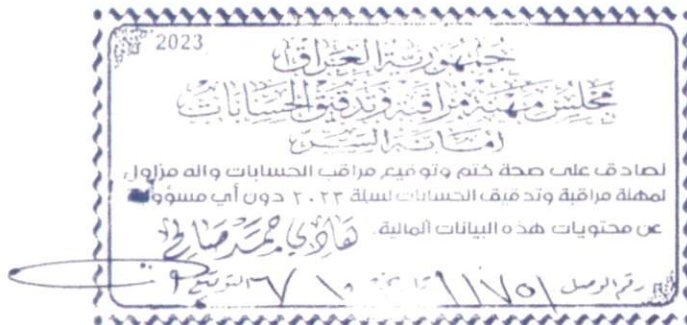 2023
جمهورية العراق
مجلس مهنة مراقبة وتدقيق الحسابات
امانة السر
نصادق على صحة ختم وتوقيع مراقب الحسابات وانه مزاول
لمهنة مراقبة وتدقيق الحسابات لسنة ٢٠٢٣ دون أي مسؤولية
عن محتويات هذه البيانات المالية.
رقم الوصل ١١٧٥١ تاريخه التوقيع